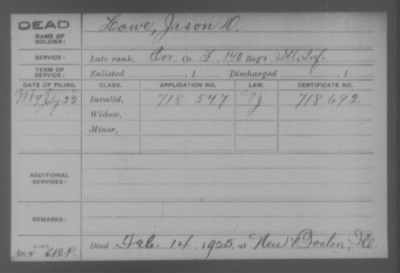 DEAD
NAME OF SOLDIER:
Lowe, Jason D.
SERVICE:
Late rank, Cor Co. F, 140 Reg't Ill. Inf.
TERM OF SERVICE:
Enlisted , 1 Discharged , 1
DATE OF FILING. CLASS. APPLICATION NO. LAW. CERTIFICATE NO.
1889 July 22 Invalid, 718 547 718 692
Widow,
Minor,
ADDITIONAL SERVICES:
REMARKS:
Died Feb. 14, 1925, at New Boston, Ill.